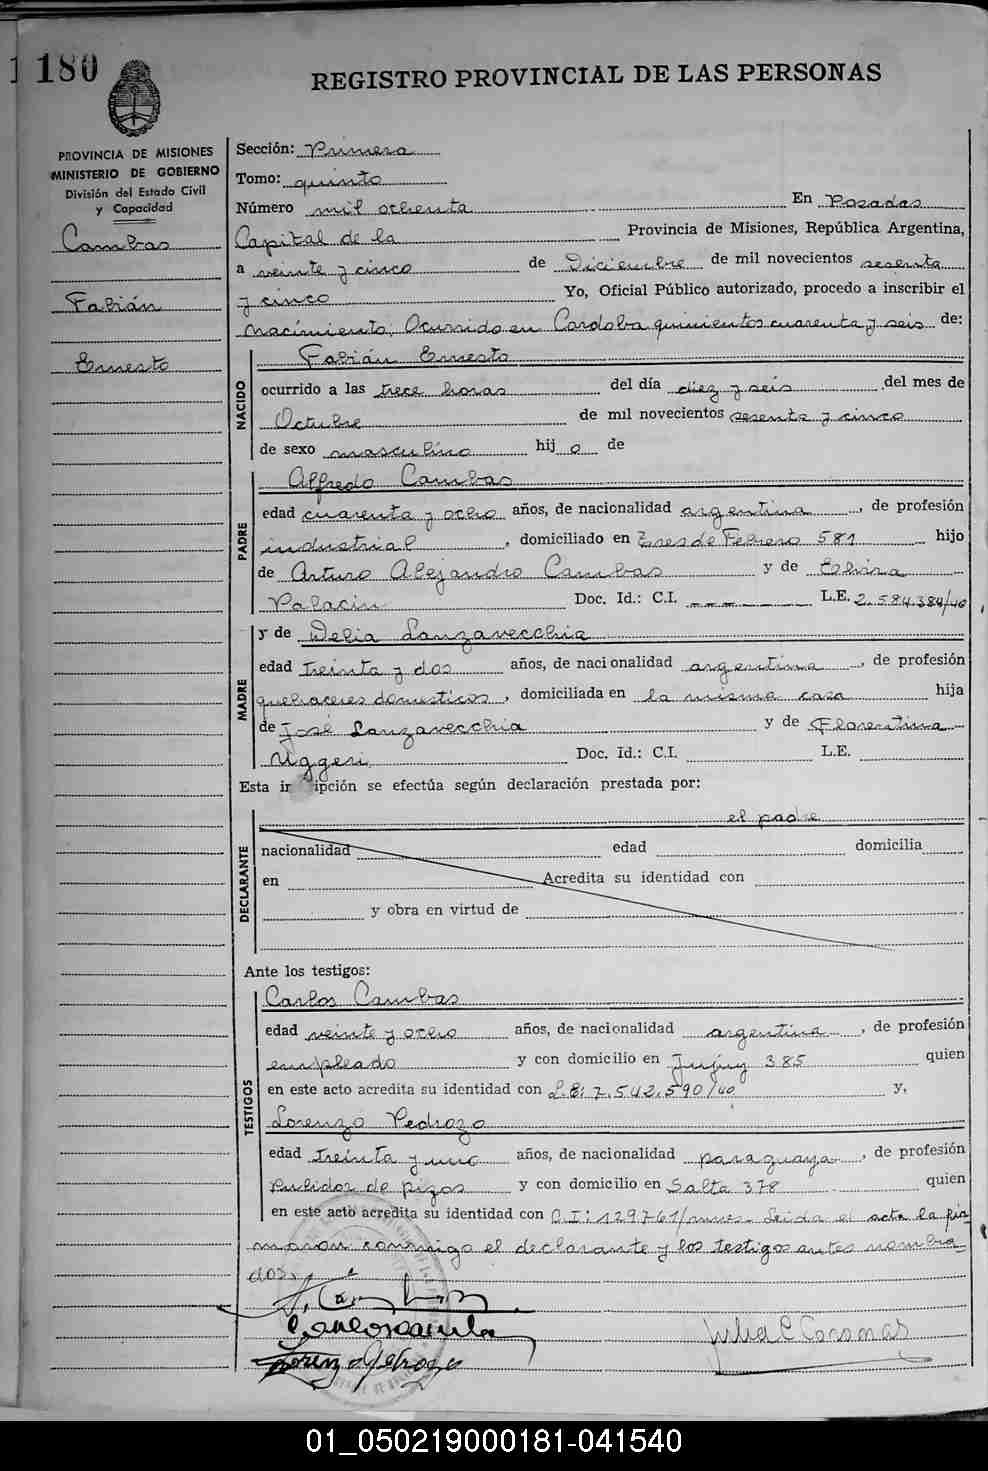 180
REGISTRO PROVINCIAL DE LAS PERSONAS
PROVINCIA DE MISIONES
MINISTERIO DE GOBIERNO
División del Estado Civil
y Capacidad
Cambas
Fabián
Ernesto
Sección: Primera
Tomo: quinto
Número mil ochenta En Posadas
Capital de la Provincia de Misiones, República Argentina,
a veinte y cinco de Diciembre de mil novecientos sesenta
y cinco Yo, Oficial Público autorizado, procedo a inscribir el
nacimiento, Ocurrido en Cordoba quinientos cuarenta y seis de:
NACIDO
Fabián Ernesto
ocurrido a las trece horas del día diez y seis del mes de
Octubre de mil novecientos sesenta y cinco
de sexo masculino hij o de
PADRE
Alfredo Cambas
edad cuarenta y ocho años, de nacionalidad argentina, de profesión
industrial, domiciliado en Tres de Febrero 581 hijo
de Arturo Alejandro Cambas y de Elvira
Palacin Doc. Id.: C.I. L.E. 2.584.384/40
MADRE
y de Delia Lanzavecchia
edad treinta y dos años, de nacionalidad argentina, de profesión
quehaceres domesticos, domiciliada en la misma casa hija
de José Lanzavecchia y de Florentina
Uggeri Doc. Id.: C.I. L.E.
Esta in ipción se efectúa según declaración prestada por:
el padre
DECLARANTE
nacionalidad edad domicilia
en Acredita su identidad con
y obra en virtud de
Ante los testigos:
TESTIGOS
Carlos Cambas
edad veinte y ocho años, de nacionalidad argentina, de profesión
empleado y con domicilio en Jujuy 385 quien
en este acto acredita su identidad con L.E: 7.542.590/40 y,
Lorenzo Pedrozo
edad treinta y uno años, de nacionalidad paraguaya, de profesión
Pulidor de pizos y con domicilio en Salta 378 quien
en este acto acredita su identidad con C.I: 129761/mnes. Leida el acta la fir
maron conmigo el declarante y los testigos antes nombra
dos.
Julia C Coronas
01_050219000181-041540